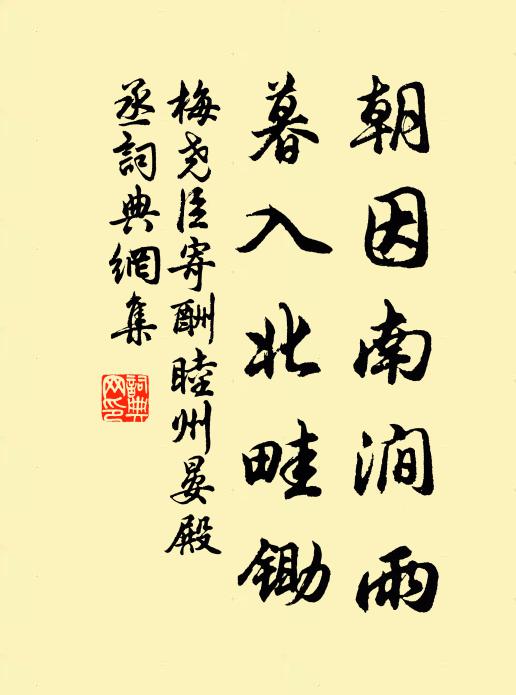 朝因南涧雨
暮入北畦锄
梅尧臣寄酬睦州晏殿
丞词典網集
詞典
网印